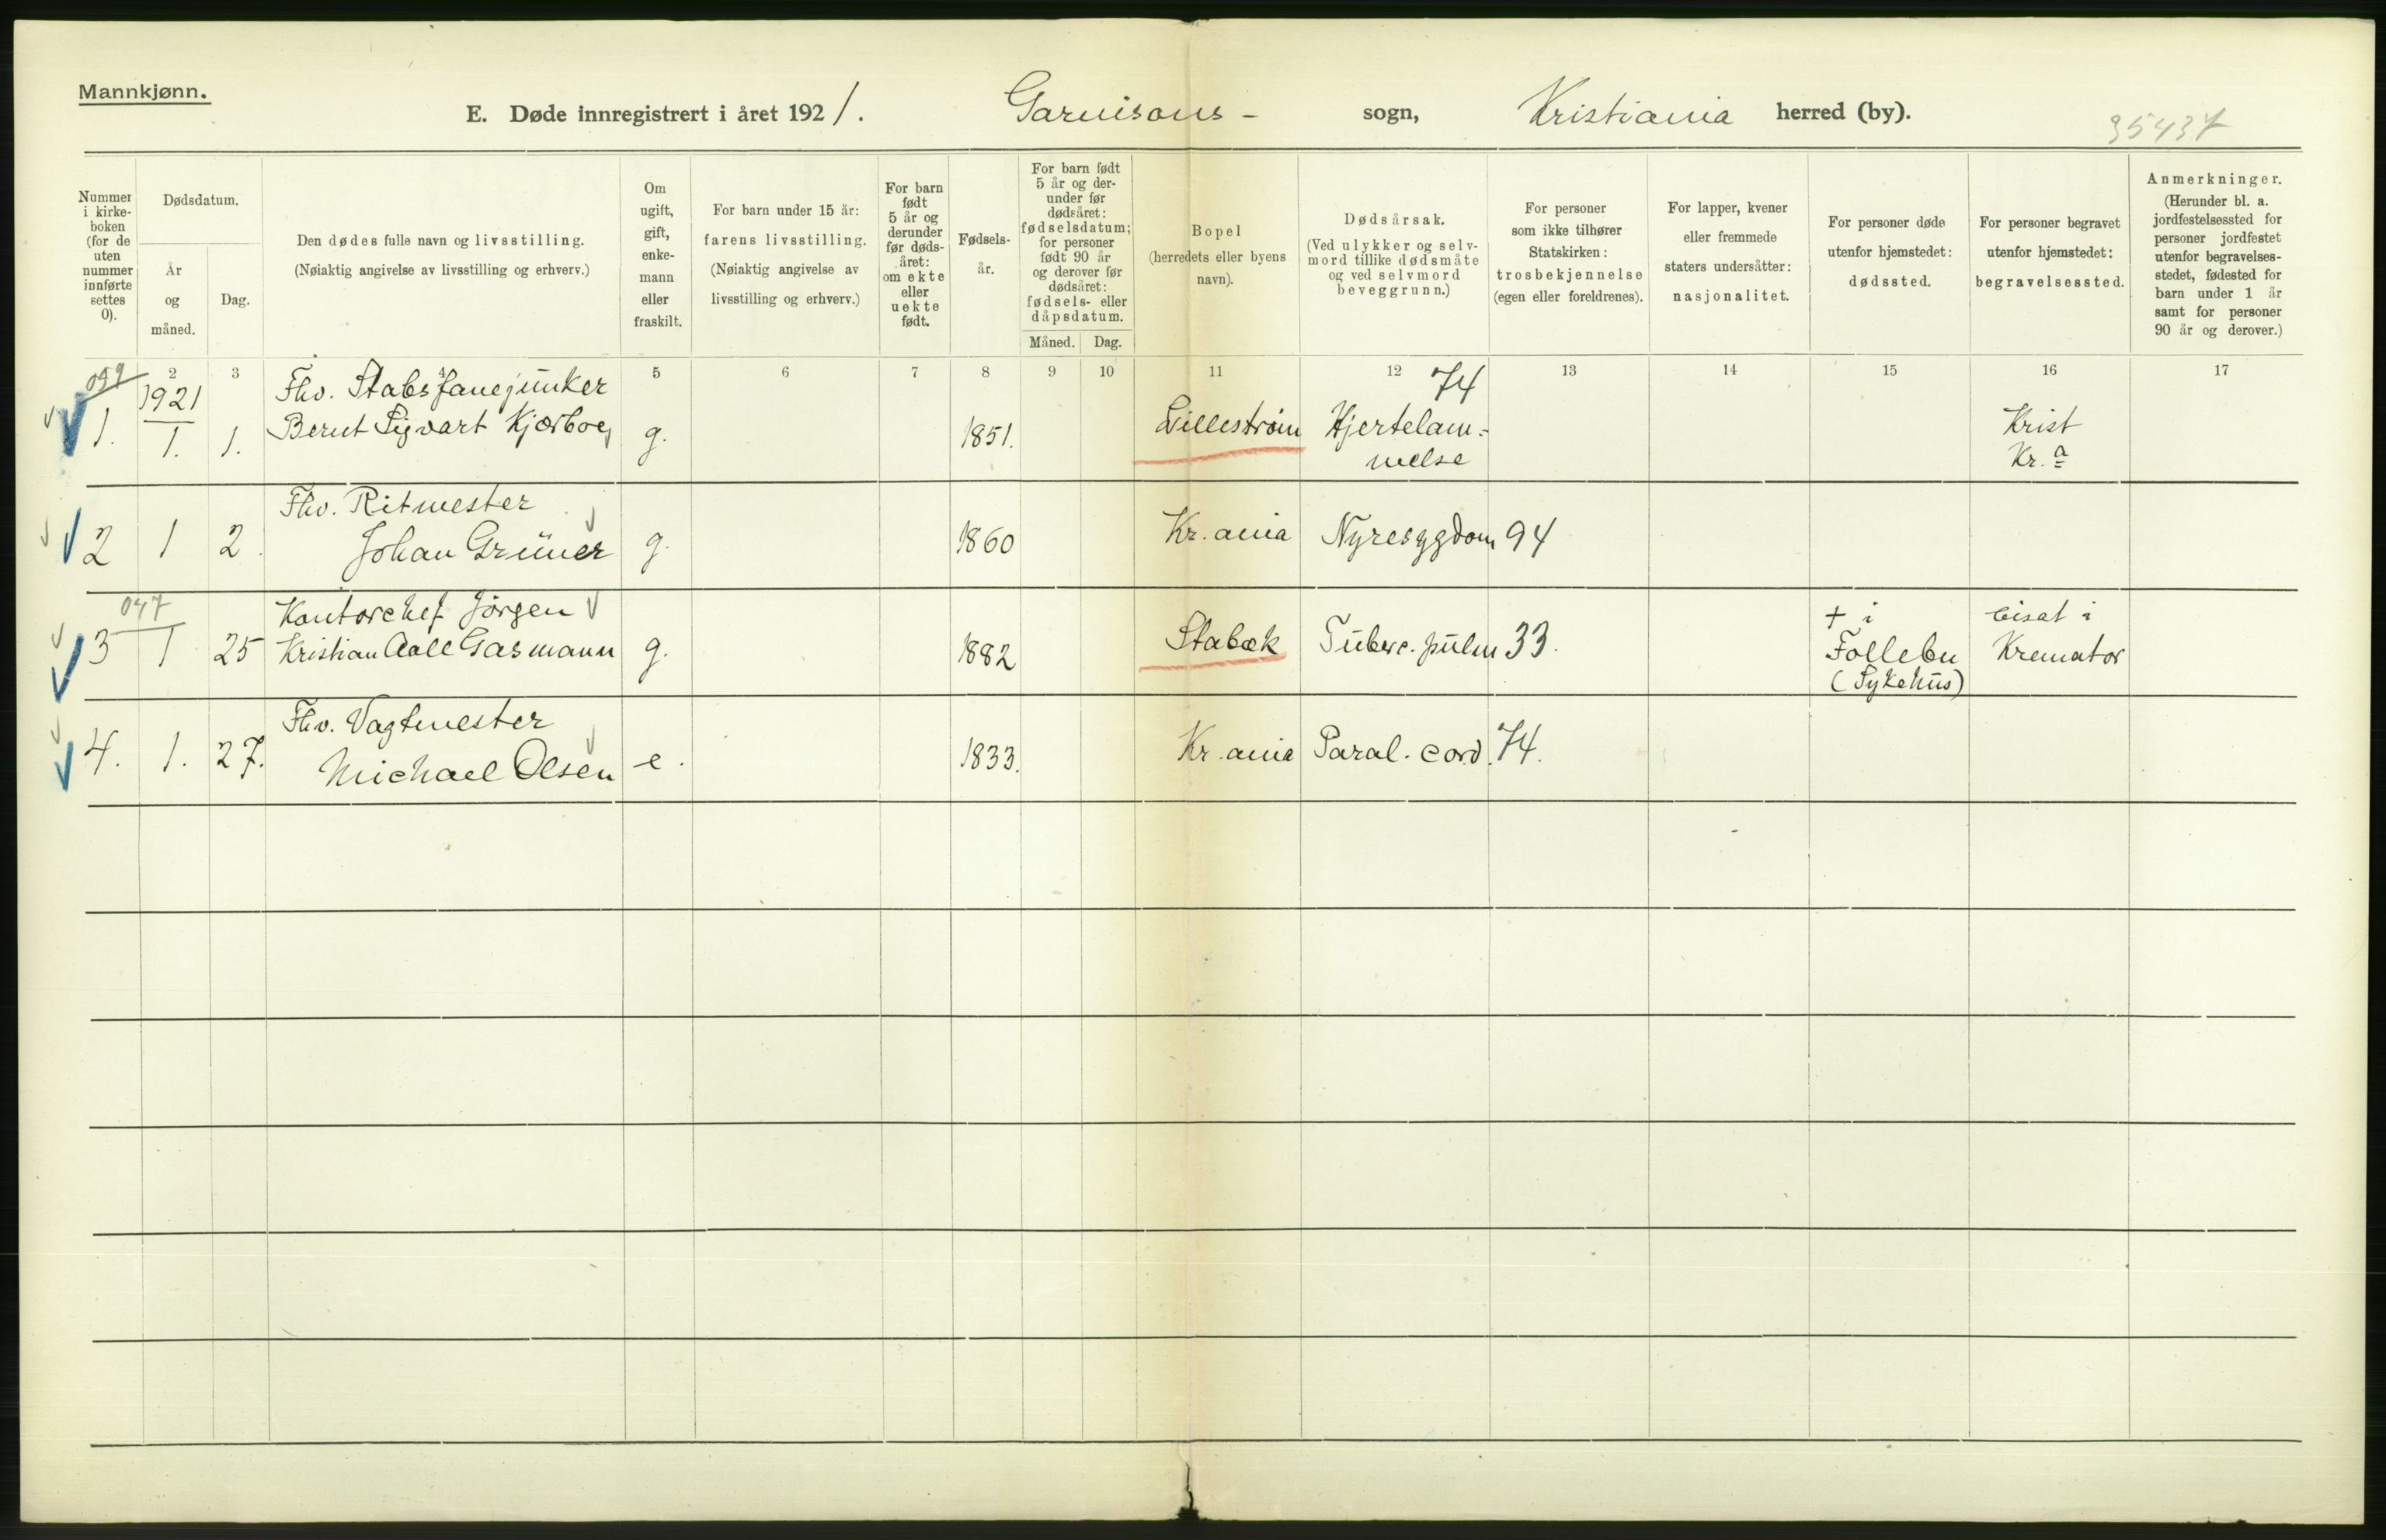 Mannkjønn.
E. Døde innregistrert i året 1921. Garnisons- sogn, Kristiania herred (by).
35437
Nummer
i kirke-
boken
(for de
uten
nummer
innførte
settes
0).
Dødsdatum.
År
og
måned.
Dag.
Den dødes fulle navn og livsstilling.
(Nøiaktig angivelse av livsstilling og erhverv.)
Om
ugift,
gift,
enke-
mann
eller
fraskilt.
For barn under 15 år:
farens livsstilling.
(Nøiaktig angivelse av
livsstilling og erhverv.)
For barn
født
5 år og
derunder
før døds-
året:
om ekte
eller
uekte
født.
Fødsels-
år.
For barn født
5 år og der-
under før
dødsåret:
fødselsdatum;
for personer
født 90 år
og derover før
dødsåret:
fødsels- eller
dåpsdatum.
Måned.
Dag.
Bopel
(herredets eller byens
navn).
Dødsårsak.
(Ved ulykker og selv-
mord tillike dødsmåte
og ved selvmord
beveggrunn.)
For personer
som ikke tilhører
Statskirken:
trosbekjennelse
(egen eller foreldrenes).
For lapper, kvener
eller fremmede
staters undersåtter:
nasjonalitet.
For personer døde
utenfor hjemstedet:
dødssted.
For personer begravet
utenfor hjemstedet:
begravelsessted.
Anmerkninger.
(Herunder bl. a.
jordfestelsessted for
personer jordfestet
utenfor begravelses-
stedet, fødested for
barn under 1 år
samt for personer
90 år og derover.)
2 3 4 5 6 7 8 9 10 11 12 13 14 15 16 17
1. 1921 1. 1.
Fhv. Stabsfanejunker
Bernt Sigvart Kjærboe
g. 1851. Lillestrøm
Hjertelam-
melse
74
Krist
Kr.a
2 1 2.
Fhv. Ritmester
Johan Grüner
g. 1860 Kr.ania Nyresygdom 94
047
3 1 25
Kontorchef Jörgen
Kristian Aall Gasmann
g. 1882 Stabæk Tuberc. pulm 33.
+ i
Follebu
(Sykehus)
bisat i
Kremator
4. 1. 27.
Fhv. Vagtmester
Michael Olsen
e. 1833. Kr.ania Paral. cord. 74.